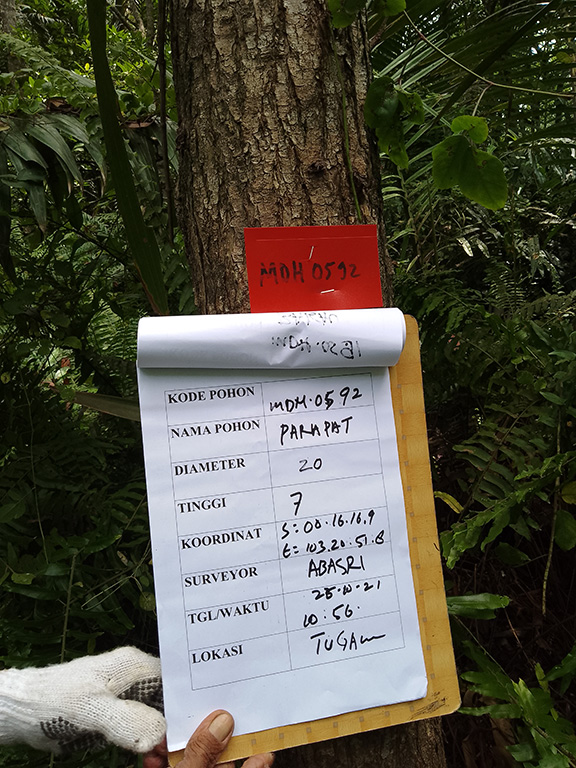 MDH 0592
KODE POHON MDM.0592
NAMA POHON PARAPAT
DIAMETER 20
TINGGI 7
KOORDINAT S=00.16.16.9
E=103.20.51.8
SURVEYOR ABASRI
TGL/WAKTU 25.10.21
10:56.
LOKASI